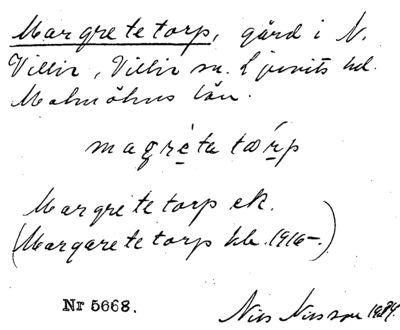 Margretetorp, gård i N.
Villie, Villie sn. Ljunits hd.
Malmöhus län.
magrèta tǽrp
Margretetorp ek.
(Margaretetorp kb. 1916-.)
Nr 5668.
Nils Nilsson